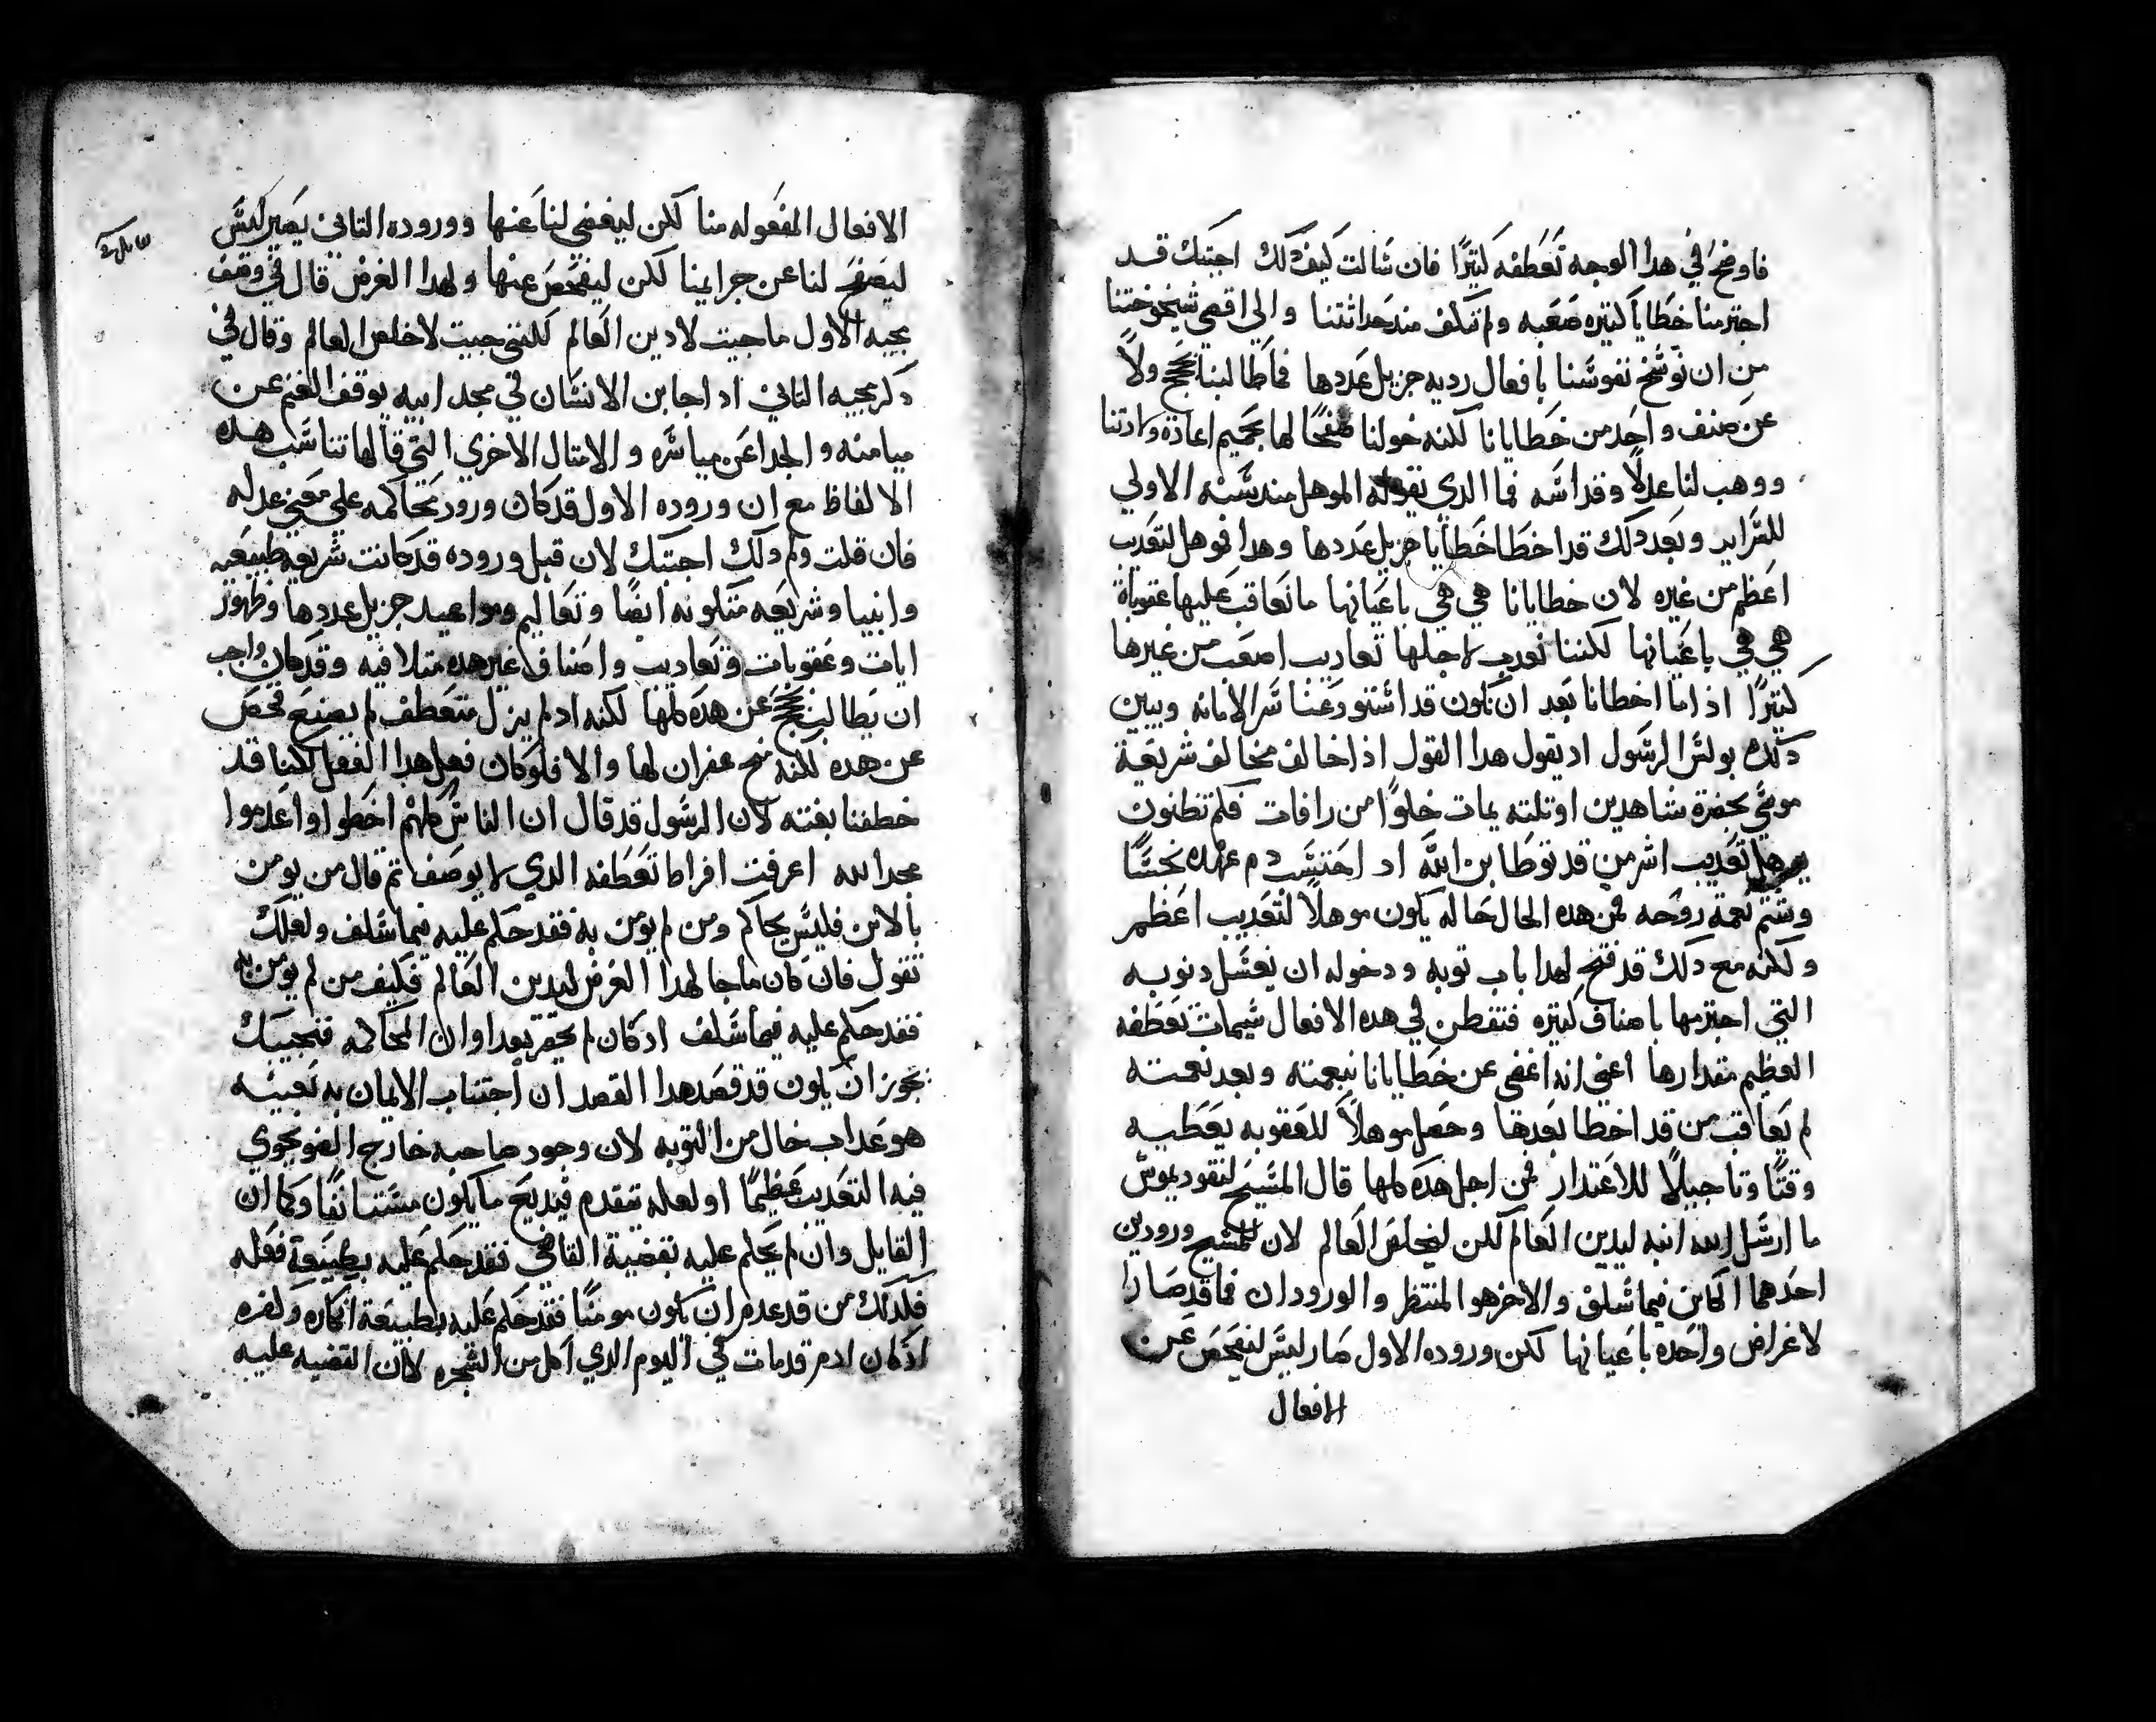 فاوضح في هدا الوجه تعطفه كتيرًا فان سالت كيف دلك اجبتك قد
اجترمنا خطايا كتيره صعبه ولم نكف مند حداثتنا والي اقصي شيخوختنا
من ان نوسخ نفوسنا بافعال رديه جزيل عددها فما طالبنا بحجج ولا
عن صنف واحد من خطايانا لكنه خولنا صفحًا لها بحميم اعادة ولادتنا
ووهب لنا عدلاً وقداسه فما الدي نقوله الموهل مند سنه الاولي
للسراير وبعد دلك قد اخطا خطايا جزيل عددها وهدا فموهل لتعديب
اعظم من غيره لان خطايانا هي هي باعيانها ما نعاقب عليها عقوباة
هي هي باعيانها لكننا نعدب لاجلها تعاديب اصعب من غيرها
كتيرًا اذا ما اخطانا بعد ان نكون قد استودعنا سر الامانه ويبين
دلك بولس الرسول اد يقول هدا القول اذا خالف مخالف شريعة
موسي بحضرة شاهدين او تلته يمات خلوًا من رافات فلم تظنون
يوهل تعديب اشر من قد توطا ابن الله اد احتسب دم عهده نجسًا
وشتم نعمة روحه فمن هده الحال حاله يكون موهلاً لتعديب اعظم
ولكنه مع دلك قد فتح لهدا باب توبه ودخوله ان يغسل دنوبه
التي اجترمها باصناف كتيره فتفطن في هده الافعال شيمات تعطفه
العظيم مقدارها اعني انه اغفي عن خطايانا بنعمته وبعد نعمته
لم يعاقب من قد اخطا بعدها وحصل موهلاً للعقوبه يعطيه
وقتًا وتاجيلاً للاعتدار فمن اجل هده كلها قال المسيح لنقوديموس
ما ارسل الله ابنه ليدين العالم لكن ليخلص العالم لان للمسيح ورودين
احدهما الكاين فيما سلف والاخر هو المنتظر والورودان فما قد صارا
لاغراض واحده باعيانها لكن وروده الاول صار ليس لنفحص عن
الافعال
الافعال المفعوله منا لكن ليغضي لنا عنها ووروده التاني يصير ليس
ليصفح لنا عن جرايمنا لكن ليفحص عنها ولهدا الغرض قال في وصف
مجيه الاول ما جيت لادين العالم لكنني جيت لاخلص العالم وقال في
دكر مجيه التاني اد اجا ابن الانسان في مجد ابيه يوقف الغنم عن
ميامنه والجدا عن مياسره والامتال الاخري التي قالها تناسب هده
الالفاظ مع ان وروده الاول قد كان ورود محاكمه علي معني عدله
فان قلت ولم دلك اجبتك لان قبل وروده قد كانت شريعه طبيعيه
وانبيا وشريعه متلونه ايضًا وتعاليم ومواعيد جزيل عددها وظهور
ايات وعقوبات وتعاديب واصناف غير هده متلافيه وقد كان واجب
ان يطالبنا بحجج عن هده كلها لكنه اد لم يزل متعطف لم يصنع فحص
عن هده لكنه منح غفران لها والا فلو كان فعل هدا الفعل لكنا قد
خطفنا بغته لان الرسول قد قال ان الناس كلهم اخطوا واعدموا
مجد الله اعرفت افراط تعطفه الدي لا يوصف تم قال من يومن
بالابن فليس يحاكم ومن لم يومن به فقد حكم عليه فيما سلف ولعلك
تقول فان كان ما جا لهدا الغرض ليدين العالم فكيف من لم يومن به
فقد حكم عليه فيما سلف اد كان لم يحضر بعد اوان المحاكمه فنجيبك
يجوز ان يكون قد قصد هدا القصد ان اجتناب الايمان به نعينه
هو عداب خال من التوبه لان وجود صاحبه خارج الضو يحوي
فيه التعديب عظيمًا او لعله يتقدم فيديع ما يكون مستانفًا وكما ان
القايل وان لم يحكم عليه بقضية القاضي فقد حكم عليه بطبيعة فعله
فكدلك من قد عدم ان يكون مومنًا فقد حكم عليه بطبيعة انكاره وكفره
اذ كان ادم قد مات في اليوم الدي اكل من الشجره لان القضيه عليه